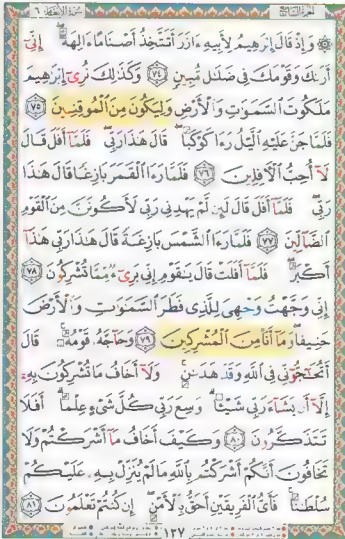 الجزء السابع سورة الأنعام ٦
۞ وَإِذْ قَالَ إِبْرَٰهِيمُ لِأَبِيهِ ءَازَرَ أَتَتَّخِذُ أَصْنَامًا ءَالِهَةً ۖ إِنِّىٓ
أَرَىٰكَ وَقَوْمَكَ فِى ضَلَٰلٍ مُّبِينٍ ﴿٧٤﴾ وَكَذَٰلِكَ نُرِىٓ إِبْرَٰهِيمَ
مَلَكُوتَ السَّمَٰوَٰتِ وَالْأَرْضِ وَلِيَكُونَ مِنَ الْمُوقِنِينَ ﴿٧٥﴾
فَلَمَّا جَنَّ عَلَيْهِ الَّيْلُ رَءَا كَوْكَبًا ۖ قَالَ هَٰذَا رَبِّى ۖ فَلَمَّآ أَفَلَ قَالَ
لَآ أُحِبُّ الْءَافِلِينَ ﴿٧٦﴾ فَلَمَّا رَءَا الْقَمَرَ بَازِغًا قَالَ هَٰذَا
رَبِّى ۖ فَلَمَّآ أَفَلَ قَالَ لَئِن لَّمْ يَهْدِنِى رَبِّى لَأَكُونَنَّ مِنَ الْقَوْمِ
الضَّآلِّينَ ﴿٧٧﴾ فَلَمَّا رَءَا الشَّمْسَ بَازِغَةً قَالَ هَٰذَا رَبِّى هَٰذَآ
أَكْبَرُ ۖ فَلَمَّآ أَفَلَتْ قَالَ يَٰقَوْمِ إِنِّى بَرِىٓءٌ مِّمَّا تُشْرِكُونَ ﴿٧٨﴾
إِنِّى وَجَّهْتُ وَجْهِىَ لِلَّذِى فَطَرَ السَّمَٰوَٰتِ وَالْأَرْضَ
حَنِيفًا ۖ وَمَآ أَنَا۠ مِنَ الْمُشْرِكِينَ ﴿٧٩﴾ وَحَآجَّهُۥ قَوْمُهُۥ ۚ قَالَ
أَتُحَٰٓجُّوٓنِّى فِى اللَّهِ وَقَدْ هَدَىٰنِ ۚ وَلَآ أَخَافُ مَا تُشْرِكُونَ بِهِۦٓ
إِلَّآ أَن يَشَآءَ رَبِّى شَيْـًٔا ۗ وَسِعَ رَبِّى كُلَّ شَىْءٍ عِلْمًا ۗ أَفَلَا
تَتَذَكَّرُونَ ﴿٨٠﴾ وَكَيْفَ أَخَافُ مَآ أَشْرَكْتُمْ وَلَا
تَخَافُونَ أَنَّكُمْ أَشْرَكْتُم بِاللَّهِ مَا لَمْ يُنَزِّلْ بِهِۦ عَلَيْكُمْ
سُلْطَٰنًا ۚ فَأَىُّ الْفَرِيقَيْنِ أَحَقُّ بِالْأَمْنِ ۖ إِن كُنتُمْ تَعْلَمُونَ ﴿٨١﴾
١٣٧